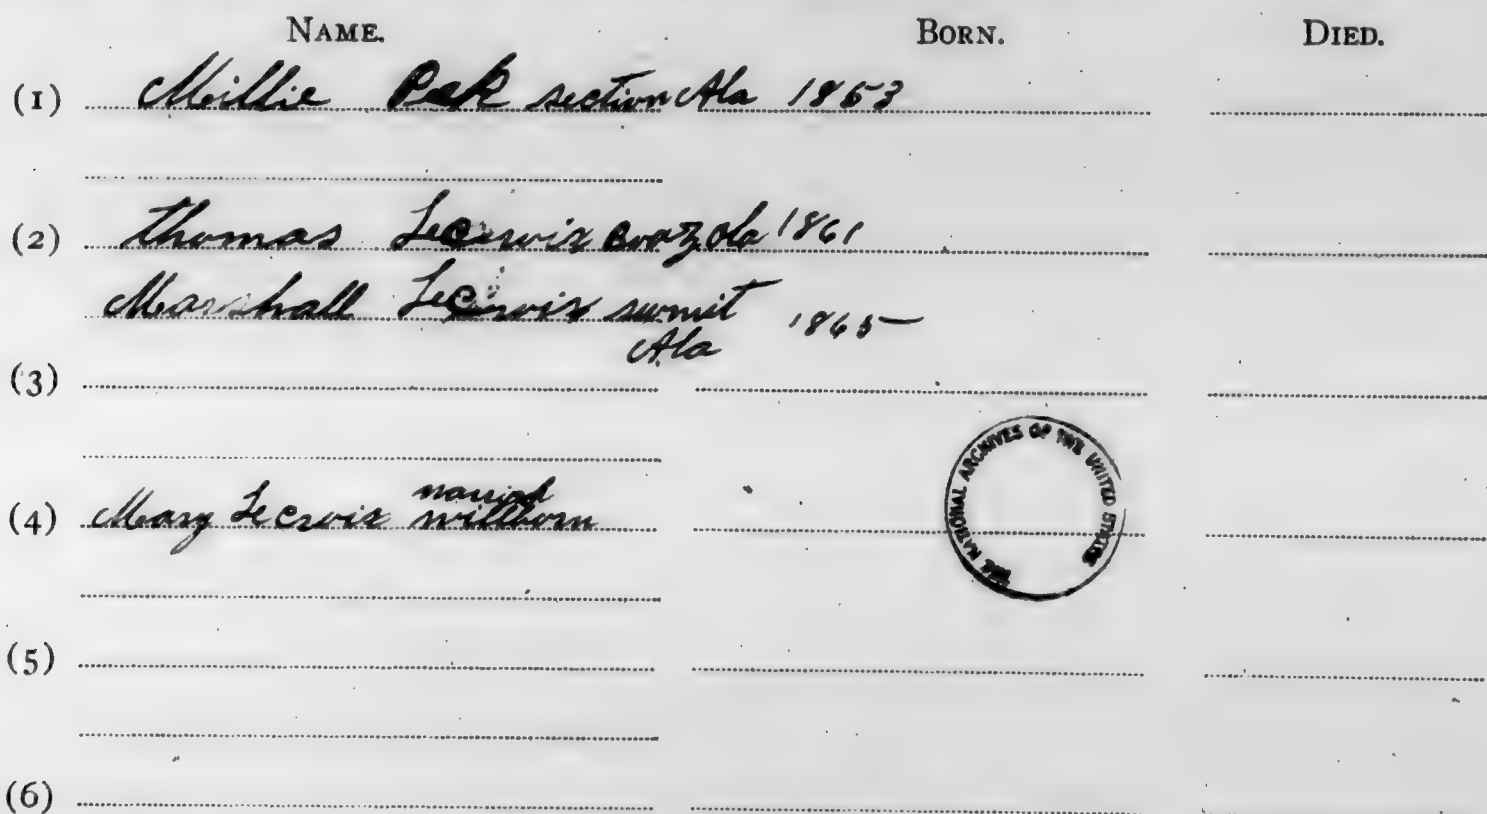 NAME. BORN. DIED.
(1) Millie Pek section Ala 1853
(2) Thomas Lecroix Boaz Ala 1861
Marshall Lecroix sumit 1865
Ala
(3)
married
(4) Mary Lecroix willborn
THE NATIONAL ARCHIVES OF THE UNITED STATES
(5)
(6)